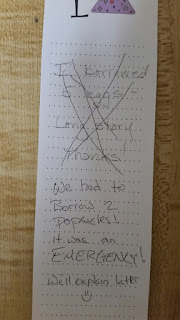 I
I borrowed
5 eggs -
Long Story
Thanks
We had to
Borrow 2
Popsicles!
it was an
EMERGENCY!
We'll explain later